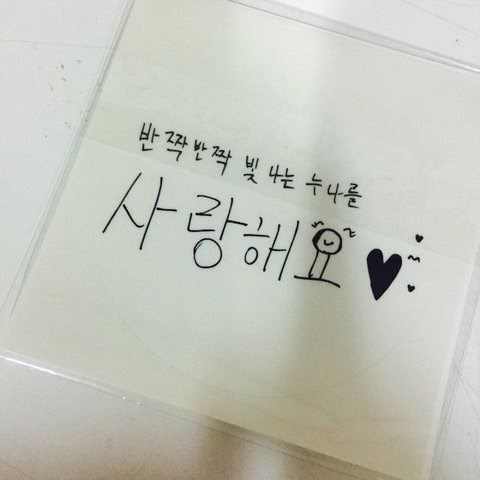 반짝반짝 빛 나는 누나를
사랑해요